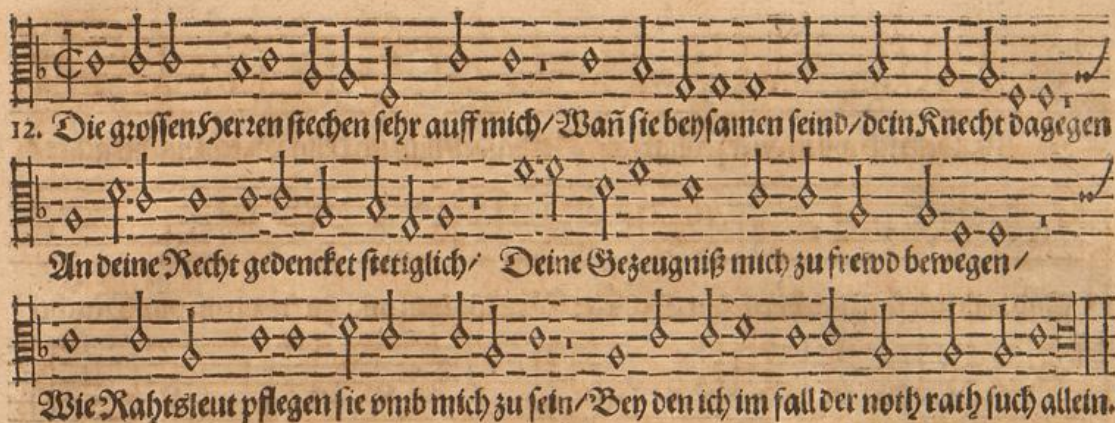 12. Die grossen Herren stechen sehr auff mich/ Wañ sie beysamen seind/ dein Knecht dagegen
An deine Recht gedencket stetiglich/ Deine Gezeugniß mich zu frewd bewegen/
Wie Rahtsleut pflegen sie vmb mich zu sein/ Bey den ich im fall der noth rath such allein.